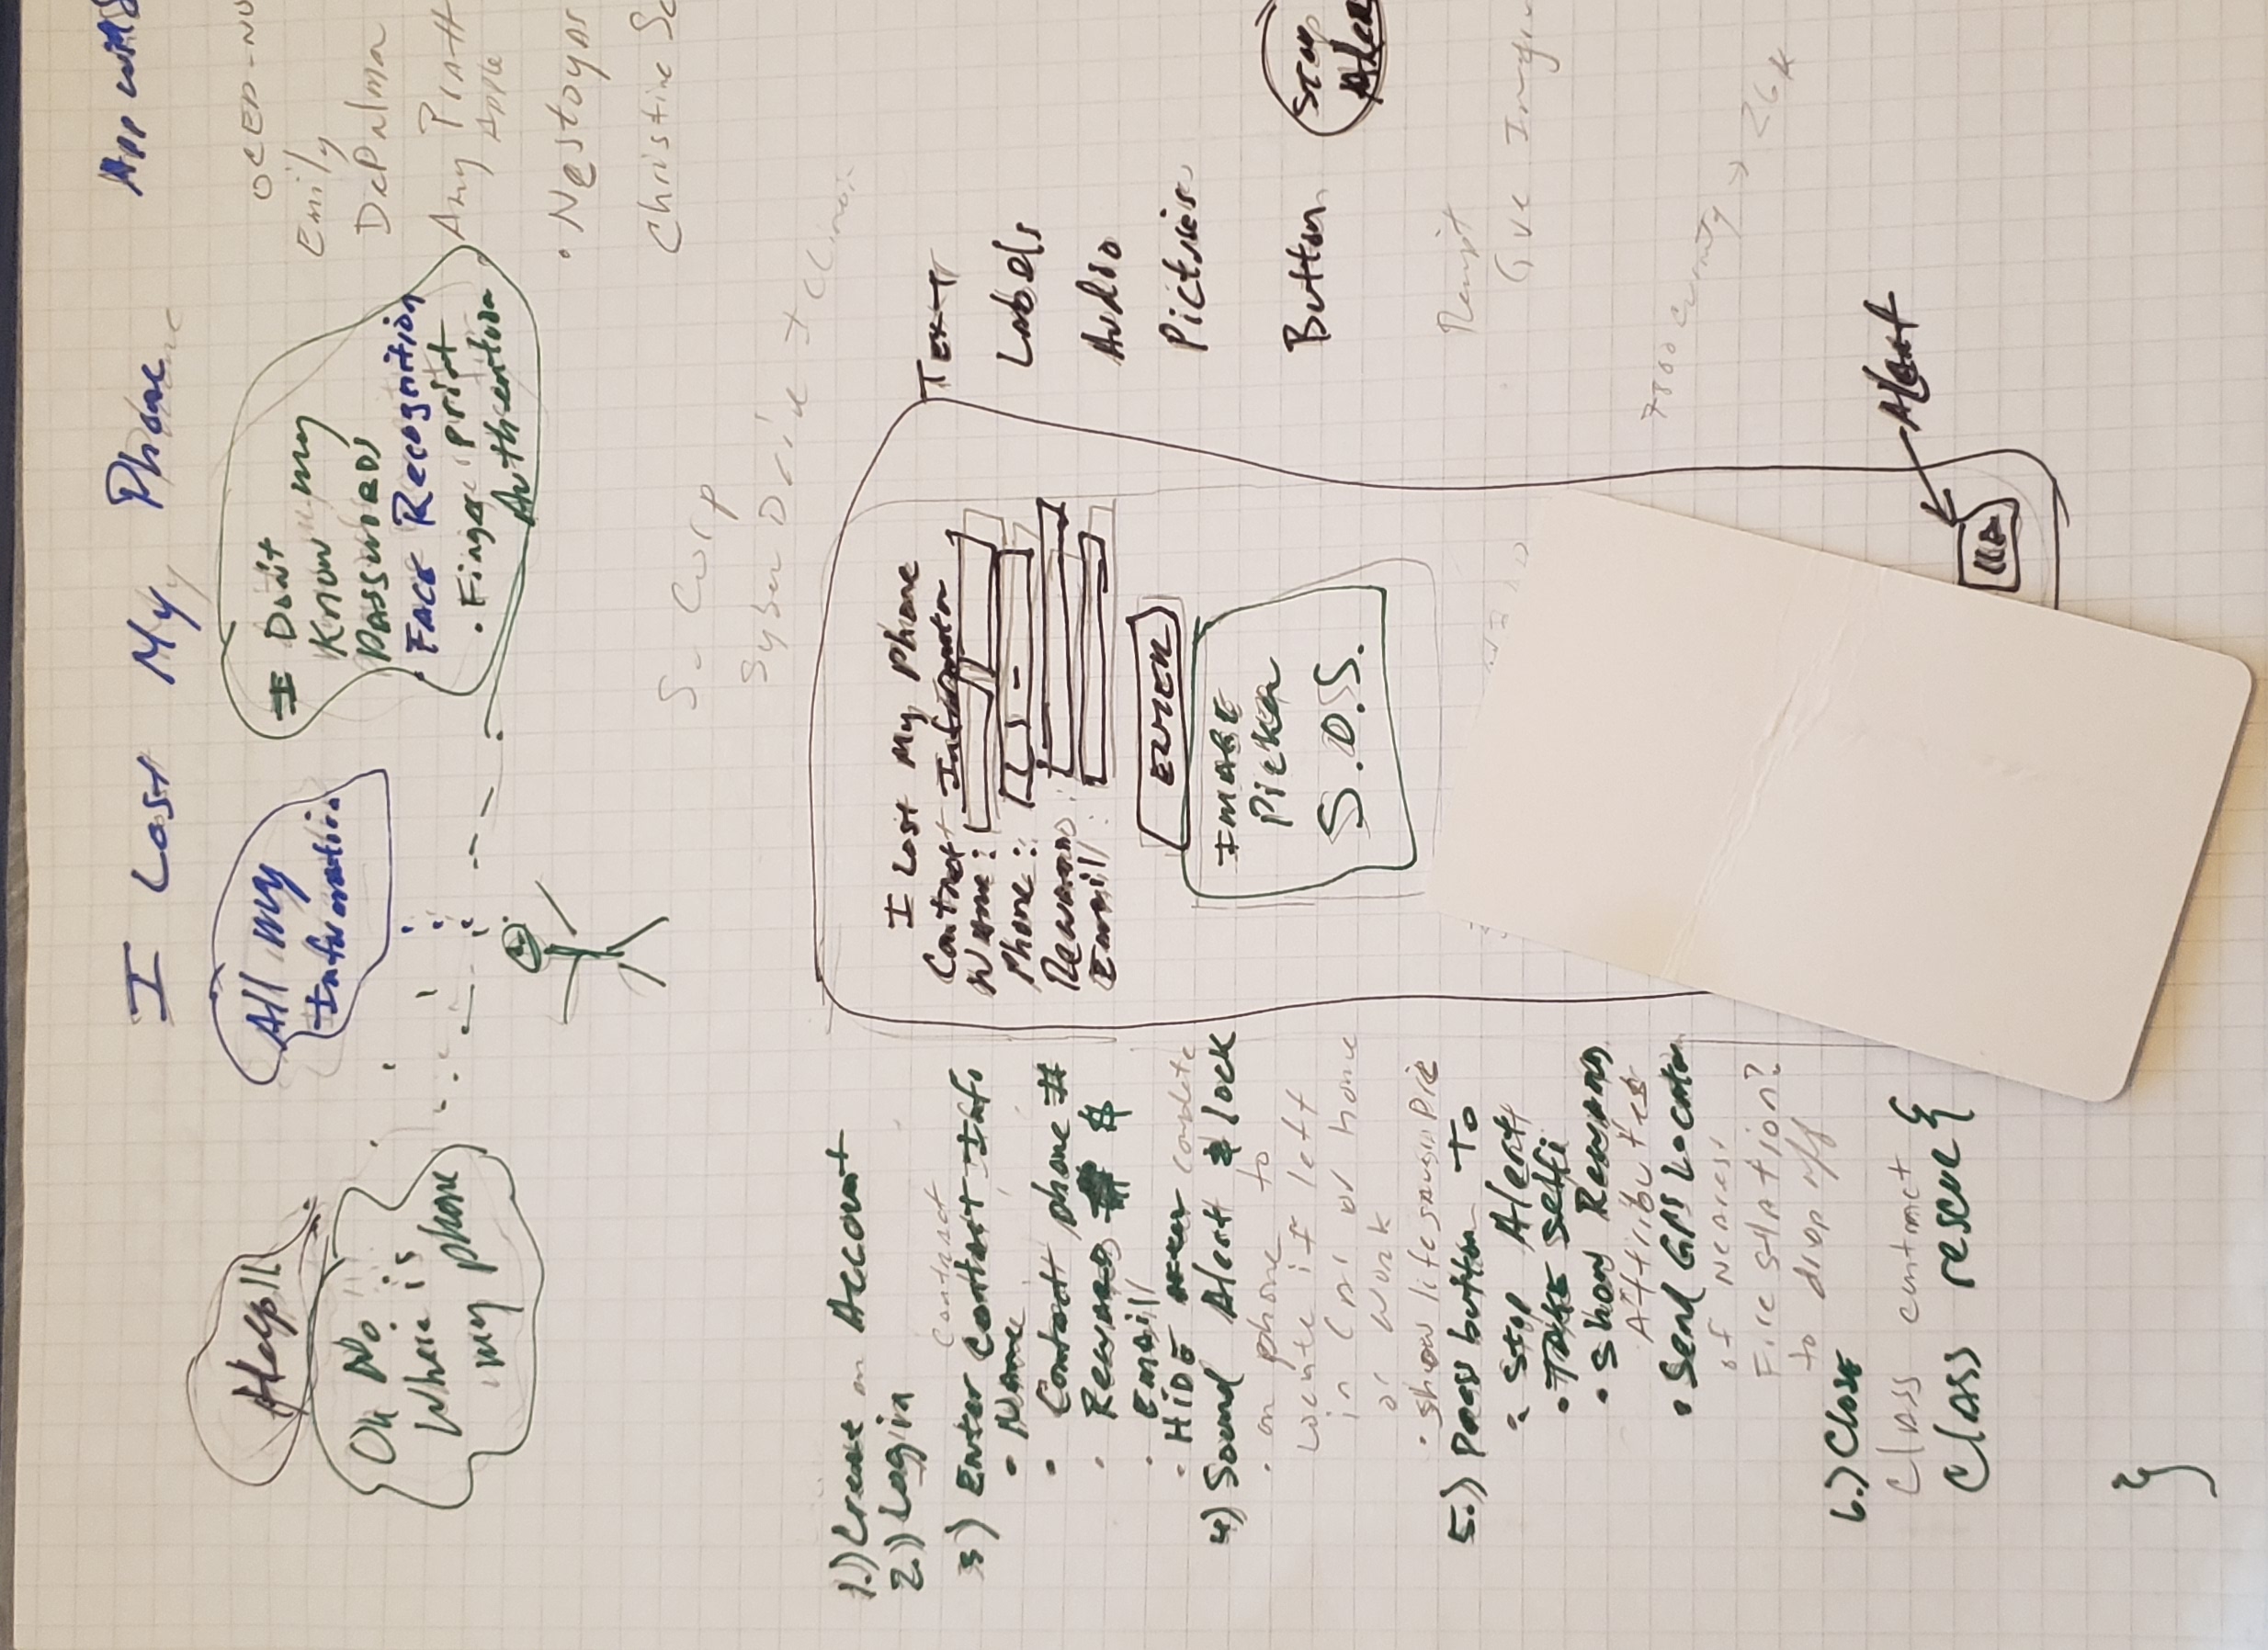 I Lost My Phone
App with
Help!!
Oh No
Where is
my phone
All my
Information
I Don't
Know my
Passwords
• Face Recognition
• Finger print
OCED-NU
Emily
DePalma
Amy Pratt
Apple
• Nestoyas
Christine Sc
S. Corp
1.) Create an Account
2.) Login
Contact
3) Enter Contact Info
• Name
• Contact phone #
• Reward $
• Email
• HIDE complete
4) Sound Alert & lock
• on phone to
Locate if left
in car or home
or work
• show life saving Pic
5.) Press button To
• Stop Alert
• TAKE selfi
• Show Reward
Attributes
• Send GPS Locator
of Nearest
Fire station?
to drop off
6.) Close
Class contract
Class rescue {
}
I Lost My Phone
Contact Information
Name:
Phone: ( ) -
Reward:
Email:
ENTER
IMAGE
Picker
S.O.S.
Text
Labels
Audio
Pictures
Button
Stop
Aler
Give
→ 26K
Alert